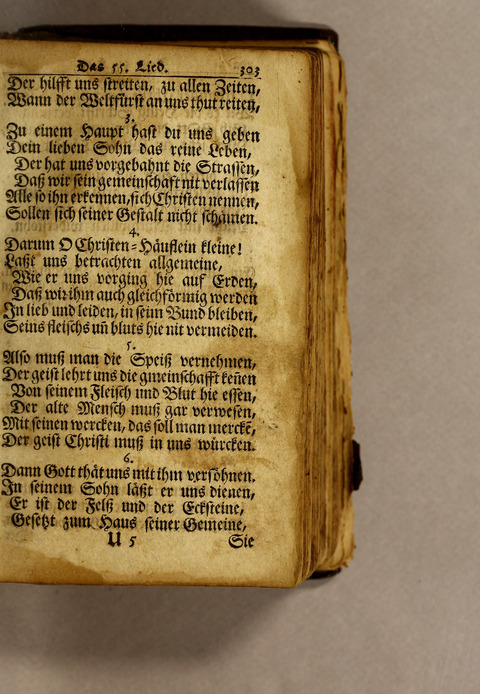 Das 55. Lied. 303
Der hilfft uns streiten, zu allen Zeiten,
Wann der Weltfürst an uns thut reiten,
3.
Zu einem Haupt hast du uns geben
Dein lieben Sohn das reine Leben,
Der hat uns vorgebahnt die Strassen,
Daß wir sein gemeinschaft nit verlassen
Alle so ihn erkennen, sich Christen nennen,
Sollen sich seiner Gestalt nicht schämen.
4.
Darum O Christen-Häuflein kleine!
Laßt uns betrachten allgemeine,
Wie er uns vorging hie auf Erden,
Daß wir ihm auch gleichförmig werden
In lieb und leiden, in seim Bund bleiben,
Seins fleischs uñ bluts hie nit vermeiden.
5.
Also muß man die Speiß vernehmen,
Der geist lehrt uns die gmeinschafft keñen
Von seinem Fleisch und Blut hie essen,
Der alte Mensch muß gar verwesen,
Mit seinen wercken, das soll man merckẽ,
Der geist Christi muß in uns würcken.
6.
Dann Gott thät uns mit ihm versöhnen.
In seinem Sohn läßt er uns dienen,
Er ist der Felß und der Ecksteine,
Gesetzt zum Haus seiner Gemeine,
U 5 Sie